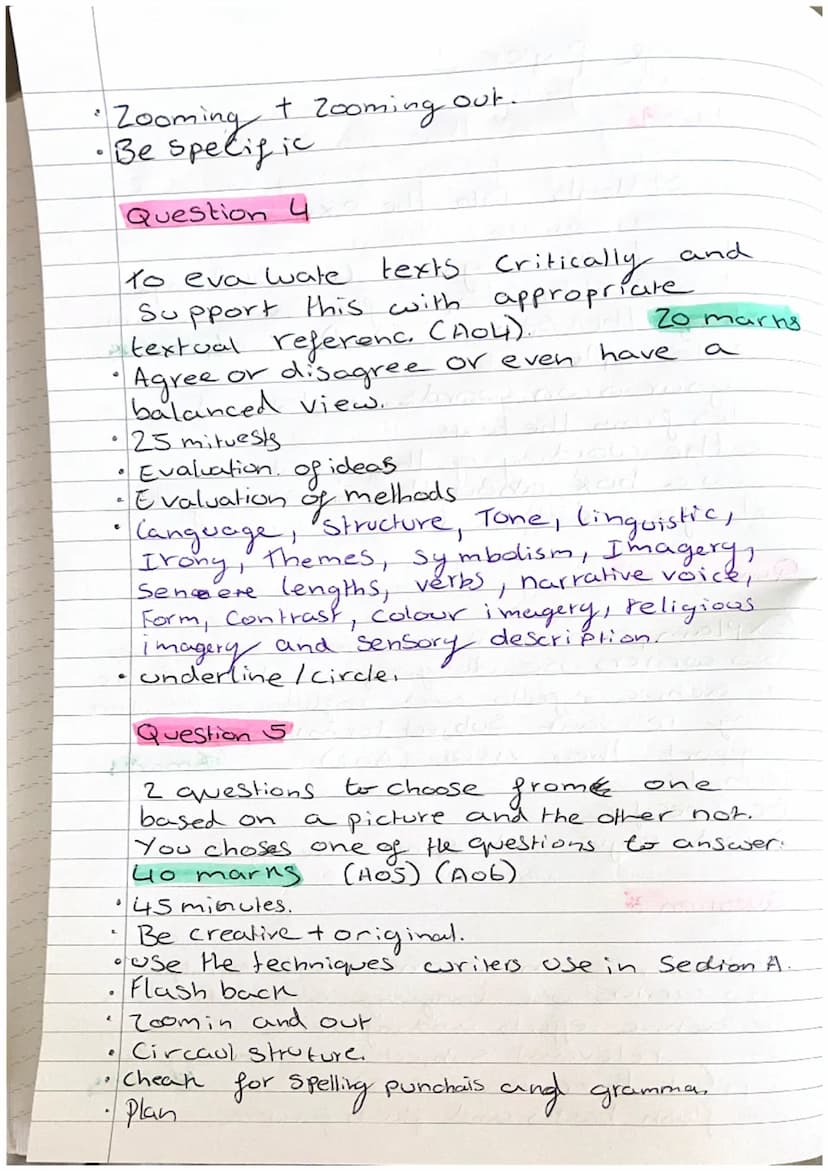 · Zooming + Zooming out.
· Be Specific
Question 4
to evaluate texts critically and
Support this with appropriate
textual referenc. (A04).
20 marks
· Agree or disagree or even have a
balanced view.
· 25 mituests
· Evaluation. of ideas
· Evaluation of methods
· Language, Structure, Tone, linguistic,
Irony, Themes, Symbolism, Imagery,
Sentere lengths, verbs, narrative voice,
Form, Contrast, Colour imagery, religious
imagery and sensory description.
· underline/circle.
Question 5
2 questions to choose from one
based on a picture and the other not.
You choses one of the questions to answer.
40 marks (A05) (A06)
· 45 minutes.
· Be creative + original.
· Use the techniques writers use in Section A.
· Flash back
· Zoom in and out
· Circaul struture.
· Cheak for spelling punchais and gramma.
· Plan